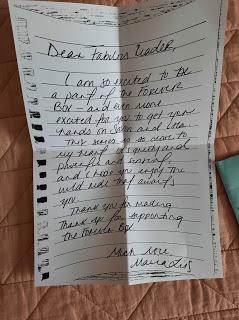 Dear Fabulous Reader,
I am so excited to be
a part of the FOREVER
Box - and even more
excited for you to get your
hands on
This series is so near to
my heart. It's and
powerful and
and I hope you enjoy the
wild ride that awaits
you
Thank you for reading
Thank you for supporting
the Forever Box
Much love